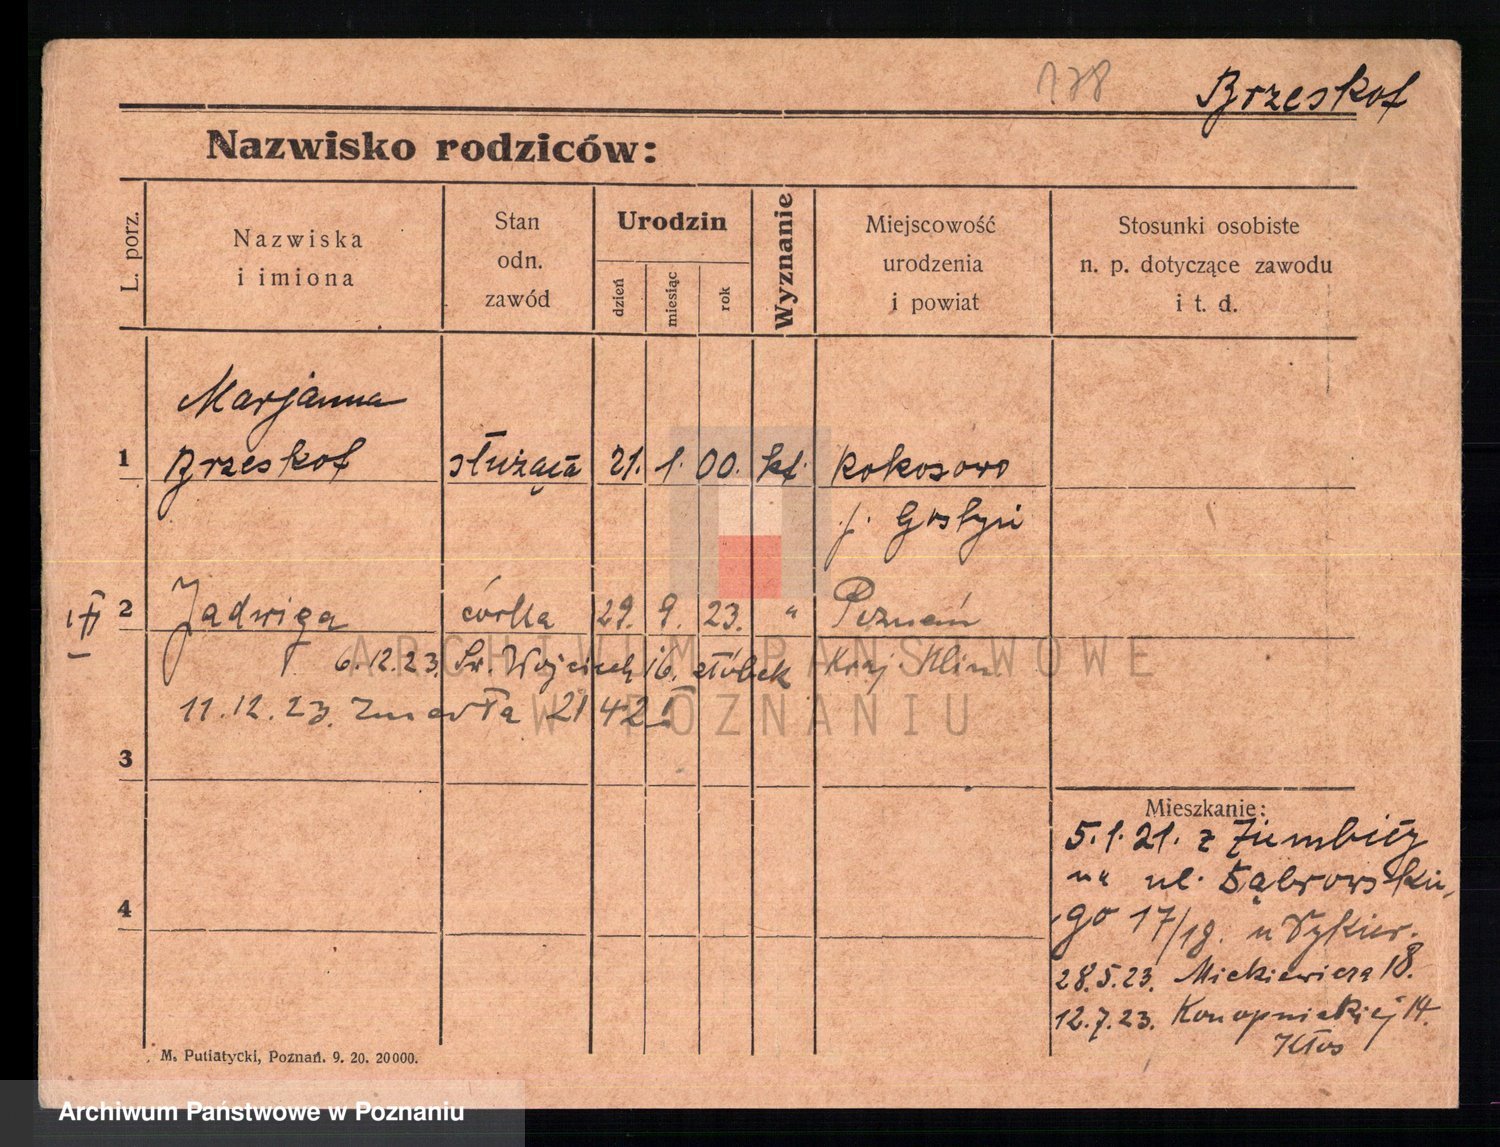 178
Brzeskot
Nazwisko rodziców:
L. porz.
Nazwiska
i imiona
Stan
odn.
zawód
Urodzin
dzień
miesiąc
rok
Wyznanie
Miejscowość
urodzenia
i powiat
Stosunki osobiste
n. p. dotyczące zawodu
i t. d.
Marjanna
1 Brzeskot służąca 21. 1. 00. kt. Kokosowo
p. Gostyń
2 Jadwiga córka 29. 9. 23. " Poznań
6.12.23. Św. Wojciech 16. żłóbek
11.12.23. zmarła
3
4
Mieszkanie:
5.1.21. z
na ul. Dąbrowskie
go 17/18. u
28.5.23. Mickiewicza 18.
12.7.23. Konopnickiej 14.
Kłos
M. Putiatycki, Poznań. 9. 20. 20000.
ARCHIWUM PAŃSTWOWE
W POZNANIU
Archiwum Państwowe w Poznaniu